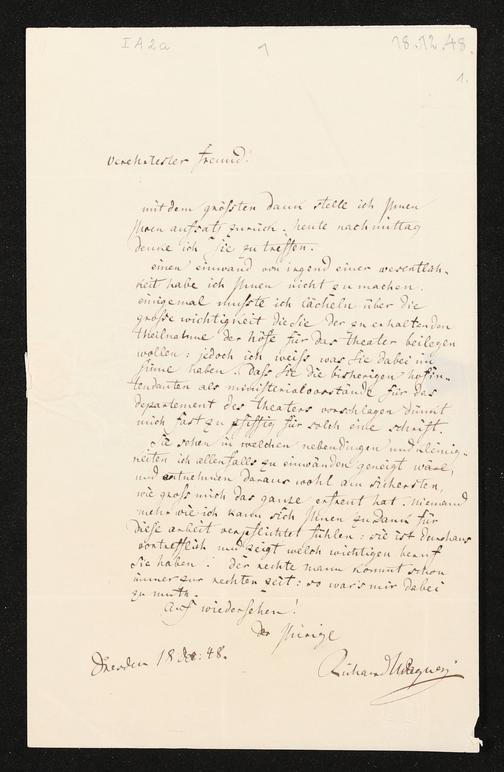 I A 2a
1
18.12.48.
1.
verehrtester freund!
mit dem grössten dank stelle ich Ihnen
Ihren aufsatz zurück. heute nachmittag
denke ich Sie zu treffen.
einen einwand von irgend einer wesentlich-
keit habe ich Ihnen nicht zu machen.
einigemal musste ich lächeln über die
grosse wichtigkeit die Sie der zu erhaltenden
theilnahme der höfe für das theater beilegen
wollen: jedoch ich weiss was Sie dabei im
sinne haben. Dass Sie die bisherigen hofin-
tendanten als ministerialvorstände für das
departement des theaters vorschlagen dünkt
mich fast zu pfiffig für solch eine schrift.
Sie sehen in welchen nebendingen und kleinig-
keiten ich allenfalls zu einwänden geneigt wäre,
und entnehmen daraus wohl am sichersten,
wie gross mich das ganze erfreut hat. niemand
mehr wie ich kann sich Ihnen zu dank für
diese arbeit verpflichtet fühlen: sie ist durchaus
vortrefflich und zeigt welch wichtigen beruf
Sie haben. der rechte mann kommt schon
immer zur rechten zeit: so war's mir dabei
zu muth.
Auf wiedersehen!
der Ihrige
Dresden 18 Dec: 48.
Richard Wagner